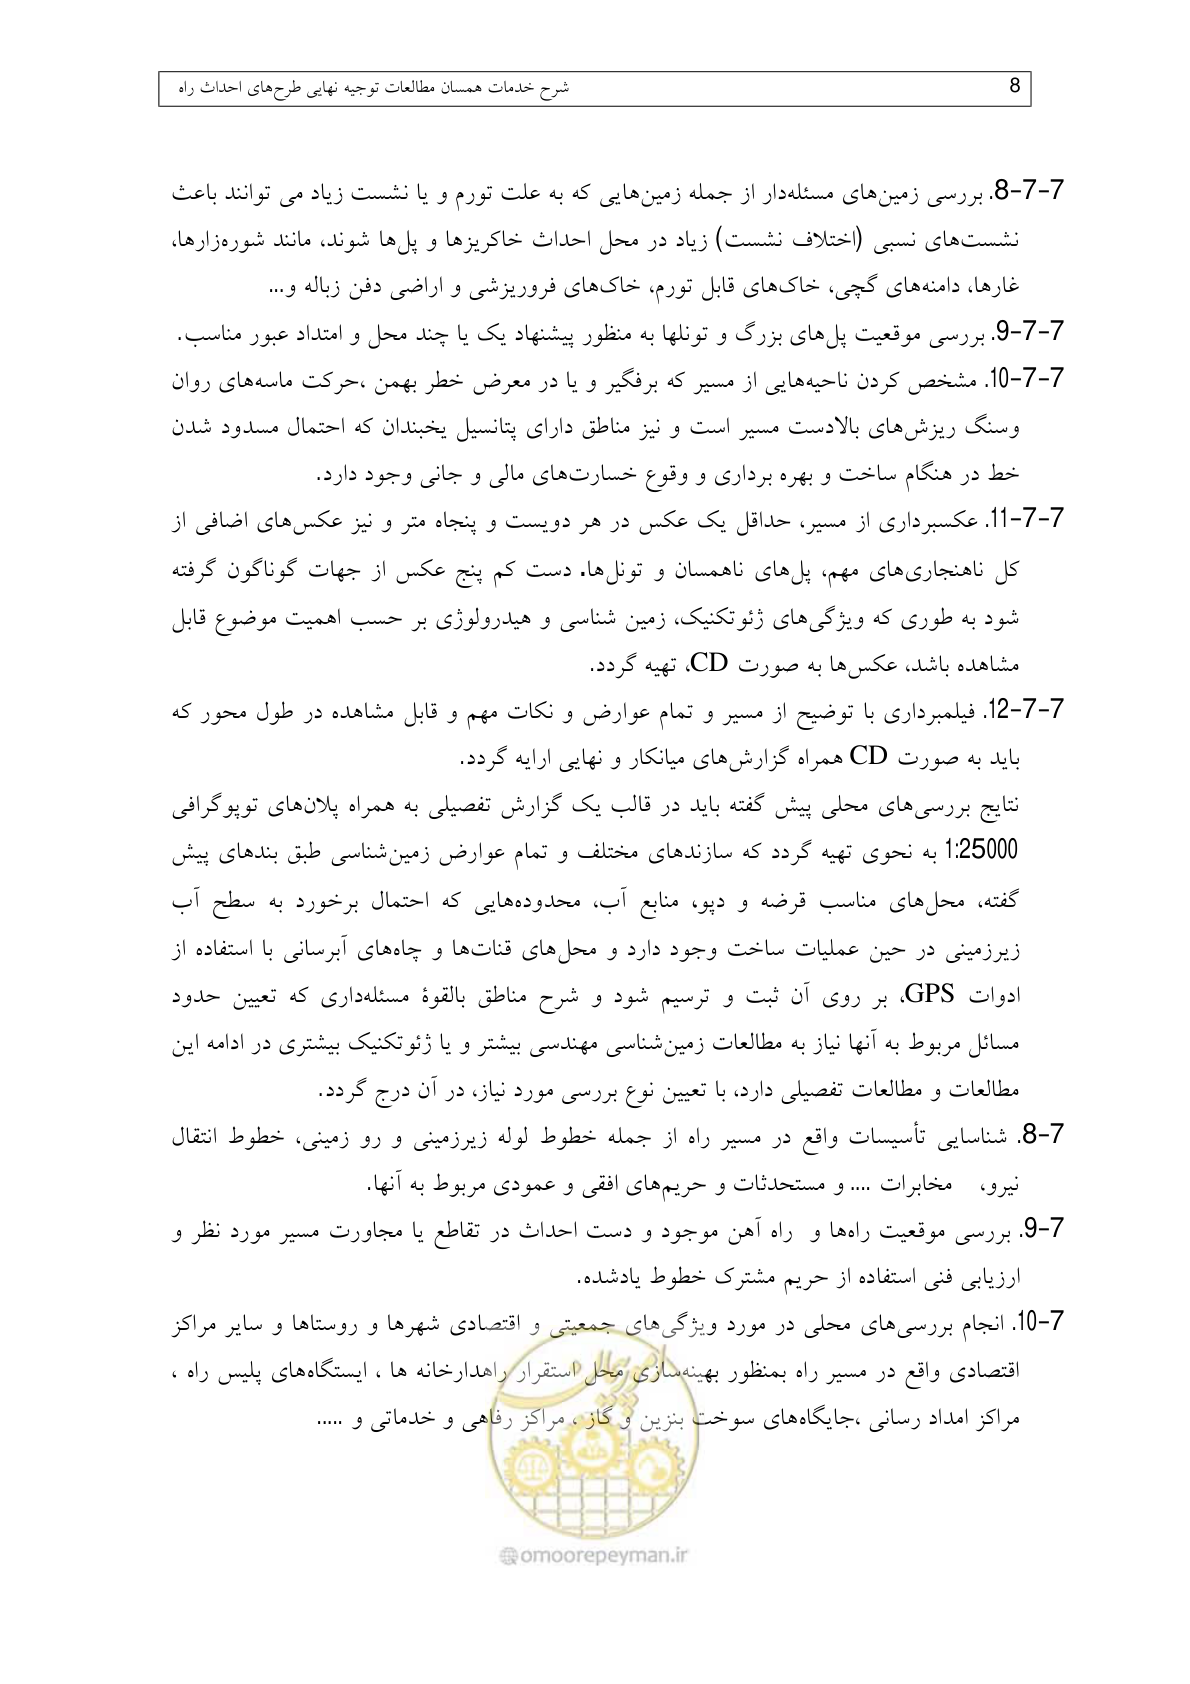 شرح خدمات همسان مطالعات توجیه نهایی طرح‌های احداث راه 8
8-7-7. بررسی زمین‌های مسئله‌دار از جمله زمین‌هایی که به علت تورم و یا نشست زیاد می توانند باعث
نشست‌های نسبی (اختلاف نشست) زیاد در محل احداث خاکریزها و پل‌ها شوند، مانند شوره‌زارها،
غارها، دامنه‌های گچی، خاک‌های قابل تورم، خاک‌های فروریزشی و اراضی دفن زباله و...
9-7-7. بررسی موقعیت پل‌های بزرگ و تونلها به منظور پیشنهاد یک یا چند محل و امتداد عبور مناسب.
10-7-7. مشخص کردن ناحیه‌هایی از مسیر که برفگیر و یا در معرض خطر بهمن ،حرکت ماسه‌های روان
وسنگ ریزش‌های بالادست مسیر است و نیز مناطق دارای پتانسیل یخبندان که احتمال مسدود شدن
خط در هنگام ساخت و بهره برداری و وقوع خسارت‌های مالی و جانی وجود دارد.
11-7-7. عکسبرداری از مسیر، حداقل یک عکس در هر دویست و پنجاه متر و نیز عکس‌های اضافی از
کل ناهنجاری‌های مهم، پل‌های ناهمسان و تونل‌ها. دست کم پنج عکس از جهات گوناگون گرفته
شود به طوری که ویژگی‌های ژئوتکنیک، زمین شناسی و هیدرولوژی بر حسب اهمیت موضوع قابل
مشاهده باشد، عکس‌ها به صورت CD، تهیه گردد.
12-7-7. فیلمبرداری با توضیح از مسیر و تمام عوارض و نکات مهم و قابل مشاهده در طول محور که
باید به صورت CD همراه گزارش‌های میانکار و نهایی ارایه گردد.
نتایج بررسی‌های محلی پیش گفته باید در قالب یک گزارش تفصیلی به همراه پلان‌های توپوگرافی
1:25000 به نحوی تهیه گردد که سازندهای مختلف و تمام عوارض زمین‌شناسی طبق بندهای پیش
گفته، محل‌های مناسب قرضه و دپو، منابع آب، محدوده‌هایی که احتمال برخورد به سطح آب
زیرزمینی در حین عملیات ساخت وجود دارد و محل‌های قنات‌ها و چاه‌های آبرسانی با استفاده از
ادوات GPS، بر روی آن ثبت و ترسیم شود و شرح مناطق بالقوۀ مسئله‌داری که تعیین حدود
مسائل مربوط به آنها نیاز به مطالعات زمین‌شناسی مهندسی بیشتر و یا ژئوتکنیک بیشتری در ادامه این
مطالعات و مطالعات تفصیلی دارد، با تعیین نوع بررسی مورد نیاز، در آن درج گردد.
8-7. شناسایی تأسیسات واقع در مسیر راه از جمله خطوط لوله زیرزمینی و رو زمینی، خطوط انتقال
نیرو، مخابرات .... و مستحدثات و حریم‌های افقی و عمودی مربوط به آنها.
9-7. بررسی موقعیت راه‌ها و راه آهن موجود و دست احداث در تقاطع یا مجاورت مسیر مورد نظر و
ارزیابی فنی استفاده از حریم مشترک خطوط یادشده.
10-7. انجام بررسی‌های محلی در مورد ویژگی‌های جمعیتی و اقتصادی شهرها و روستاها و سایر مراکز
اقتصادی واقع در مسیر راه بمنظور بهینه‌سازی محل استقرار راهدارخانه ها ، ایستگاه‌های پلیس راه ،
مراکز امداد رسانی ،جایگاه‌های سوخت بنزین و گاز ، مراکز رفاهی و خدماتی و .....
امور پیمان
@omoorepeyman.ir